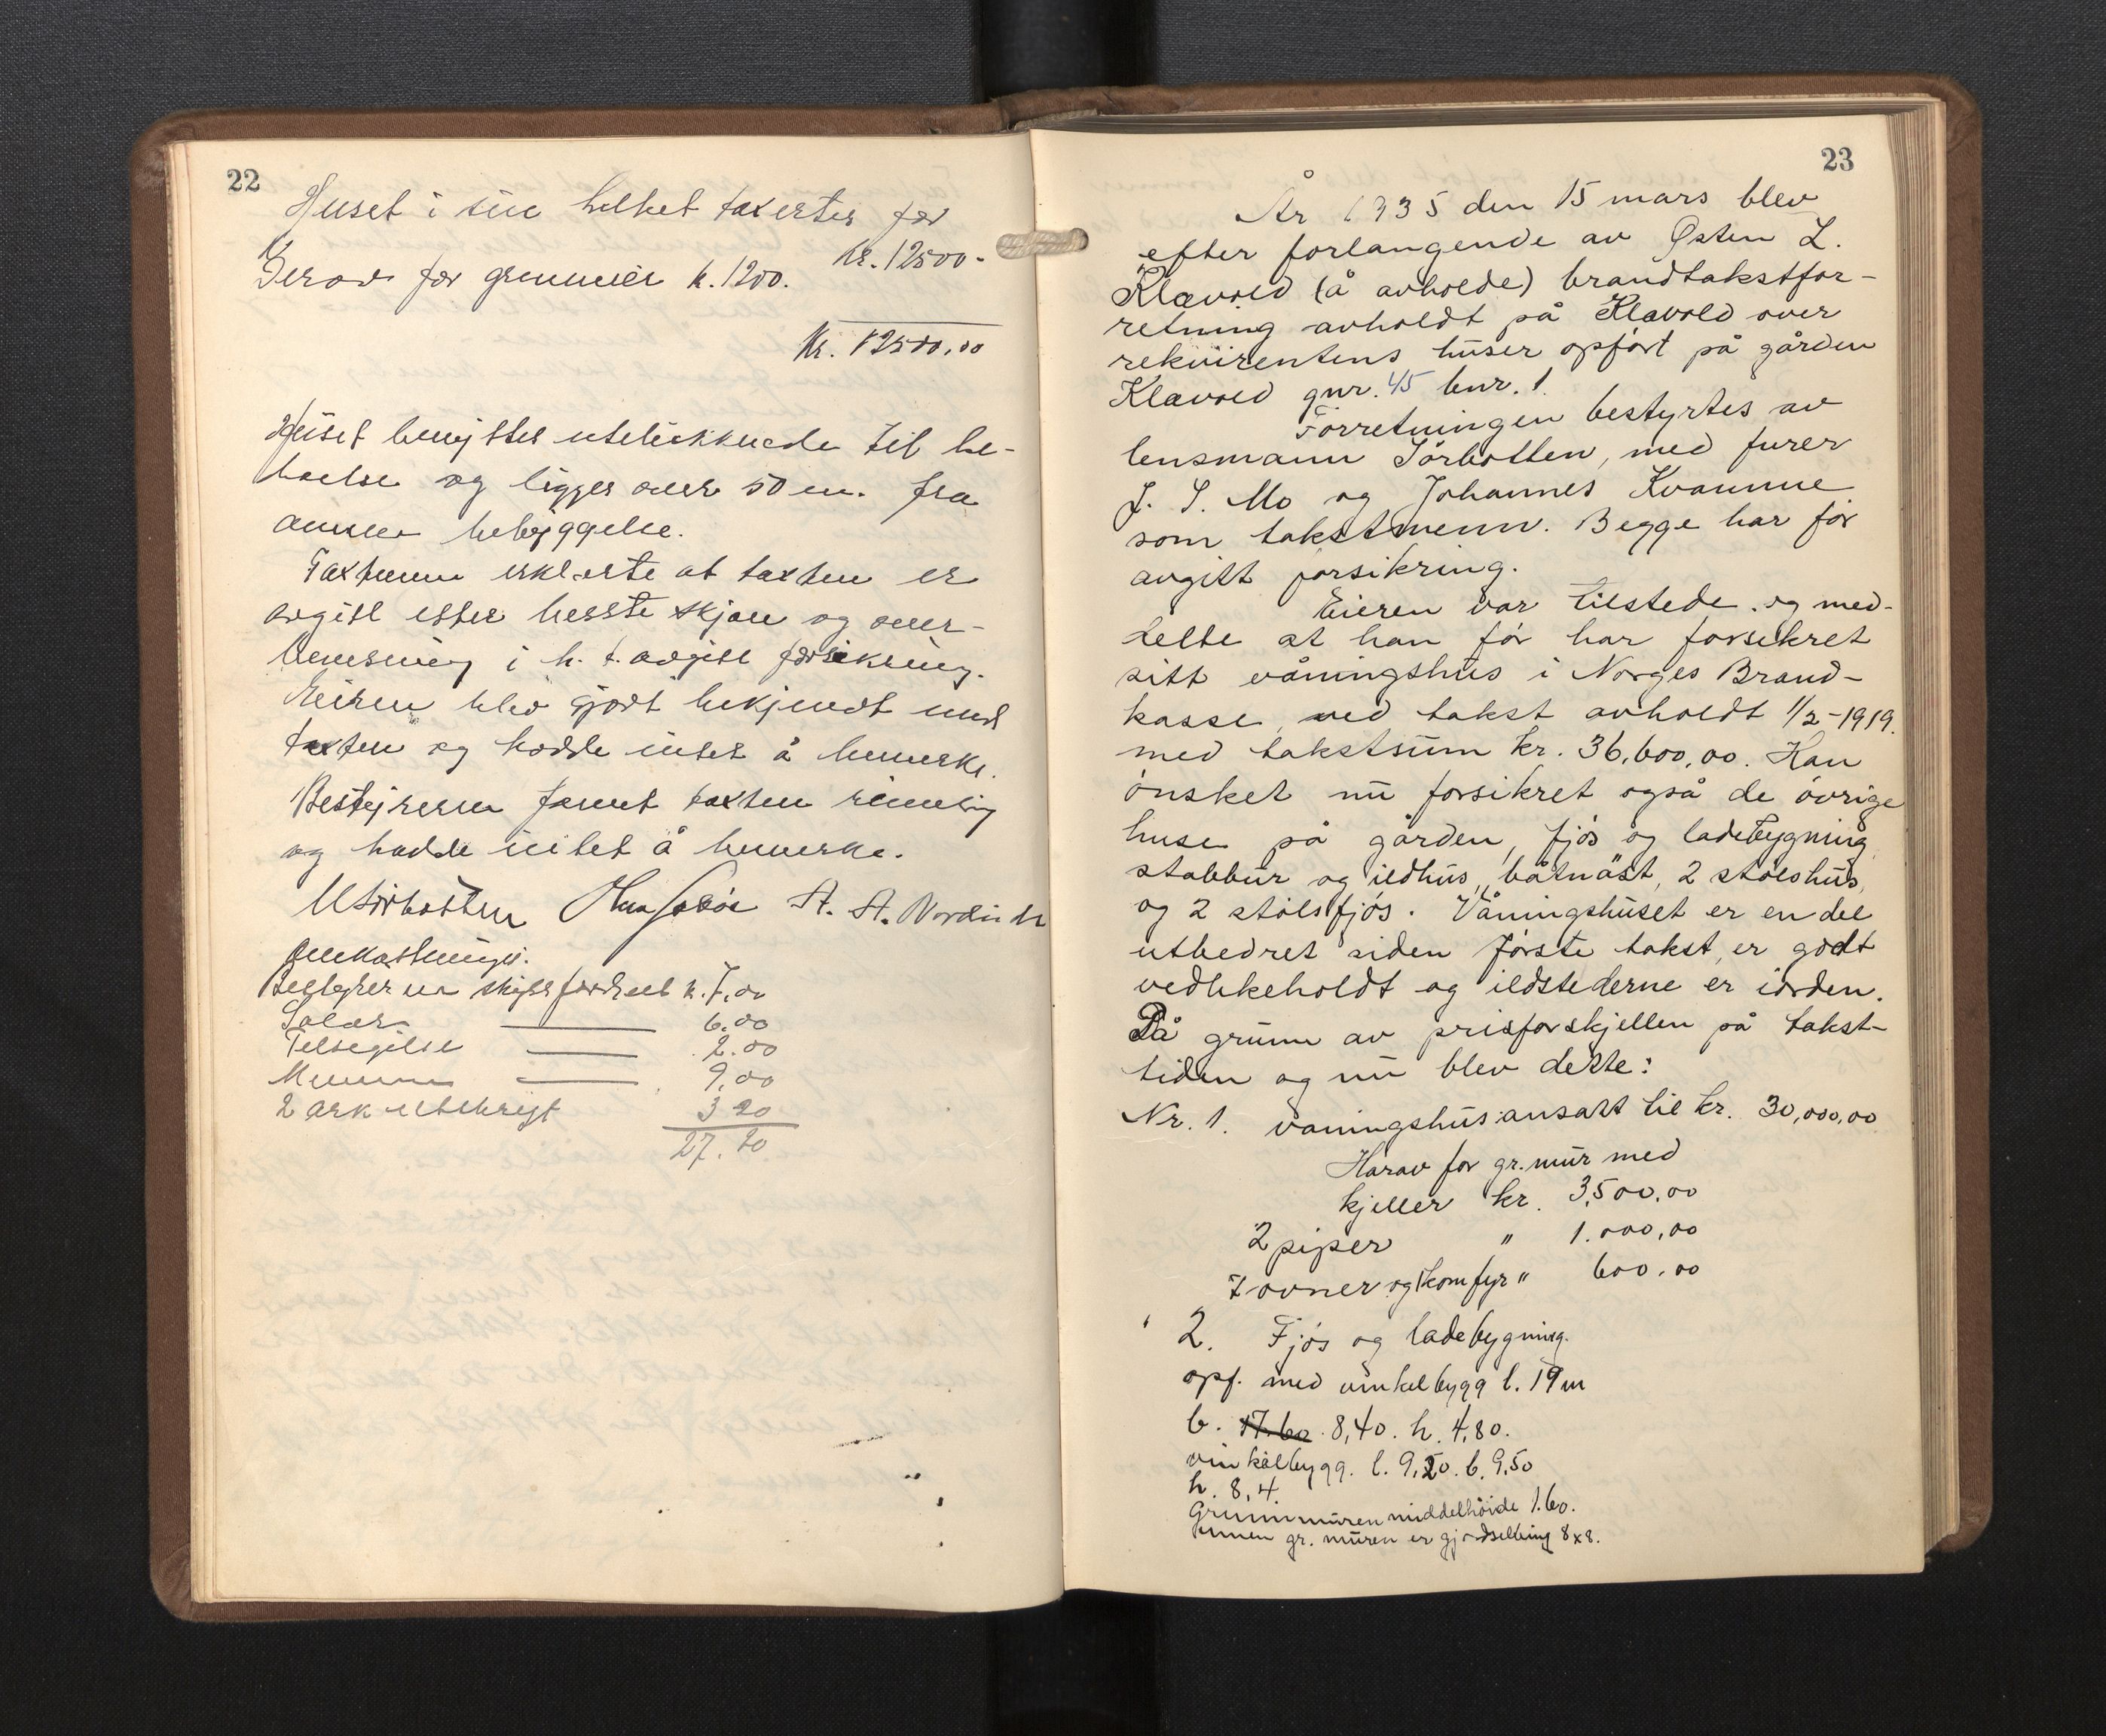 22
Huset i sin helhet taxertes for
kr. 12500.-
Derav for grunmur kr. 1200.
Kr. 12500,00
Huset benyttes utelukkende til be-
boelse og ligger over 50 m. fra
annen bebyggelse.
Taxtmenn erklærte at taxten er
avgitt efter beste skjøn og over-
bevisning i h. t. avgitt forsikring.
Eieren blev gjort bekjendt med
taxten og hadde intet å bemerke.
Bestyreren fannt taxten rimelig
og hadde intet å bemerke.
A. A. Nordvik
Omkostninger:
Bestyreren skyssgodtgj. kr. 7,00
Salær 6.00
Tilsigelse 2.00
Menn 9,00
2 ark utskrift 3 20
27.20
23
År 1935 den 15 mars blev
efter forlangende av Østen L.
Klævold (å avholde) brandtakstfor-
retning avholdt på Klævold over
rekvirentens huser opført på gården
Klævold gnr. 45 bnr. 1.
Forretningen bestyrtes av
lensmann Sørbotten, med furer
J. S. Mo og Johannes Kvamme
som takstmenn. Begge har før
avgitt forsikring.
Eieren var tilstede og med-
delte at han før har forsikret
sitt våningshus i Norges Brand-
kasse, ved takst avholdt 1/2-1919.
med takstsum kr. 36,600,00. Han
ønsket nu forsikret også de øvrige
huse på gården, fjøs og ladebygning
stabbur og ildhus, båtnäst, 2 stølshus,
og 2 stølsfjøs. Våningshuset er en del
utbedret siden første takst, er godt
vedlikeholdt og ildstederne er iorden.
På grunn av prisforskjellen på takst-
tiden og nu blev dette:
Nr. 1. våningshus ansatt til kr. 30,000,00
Herav for gr.mur med
kjeller kr. 3,500,00
2 piper " 1.000,00
7 ovner og 1 komfyr " 600,00
" 2. Fjøs og ladebygning.
opf. med vinkelbygg l. 19 m
b. 17.60. 8,40. h. 4,80.
vinkelbygg. l. 9,20. b. 9,50
h. 8,4.
Grunnmuren middelhöide 1.60.
innen gr. muren er gjødselbing 8x8.